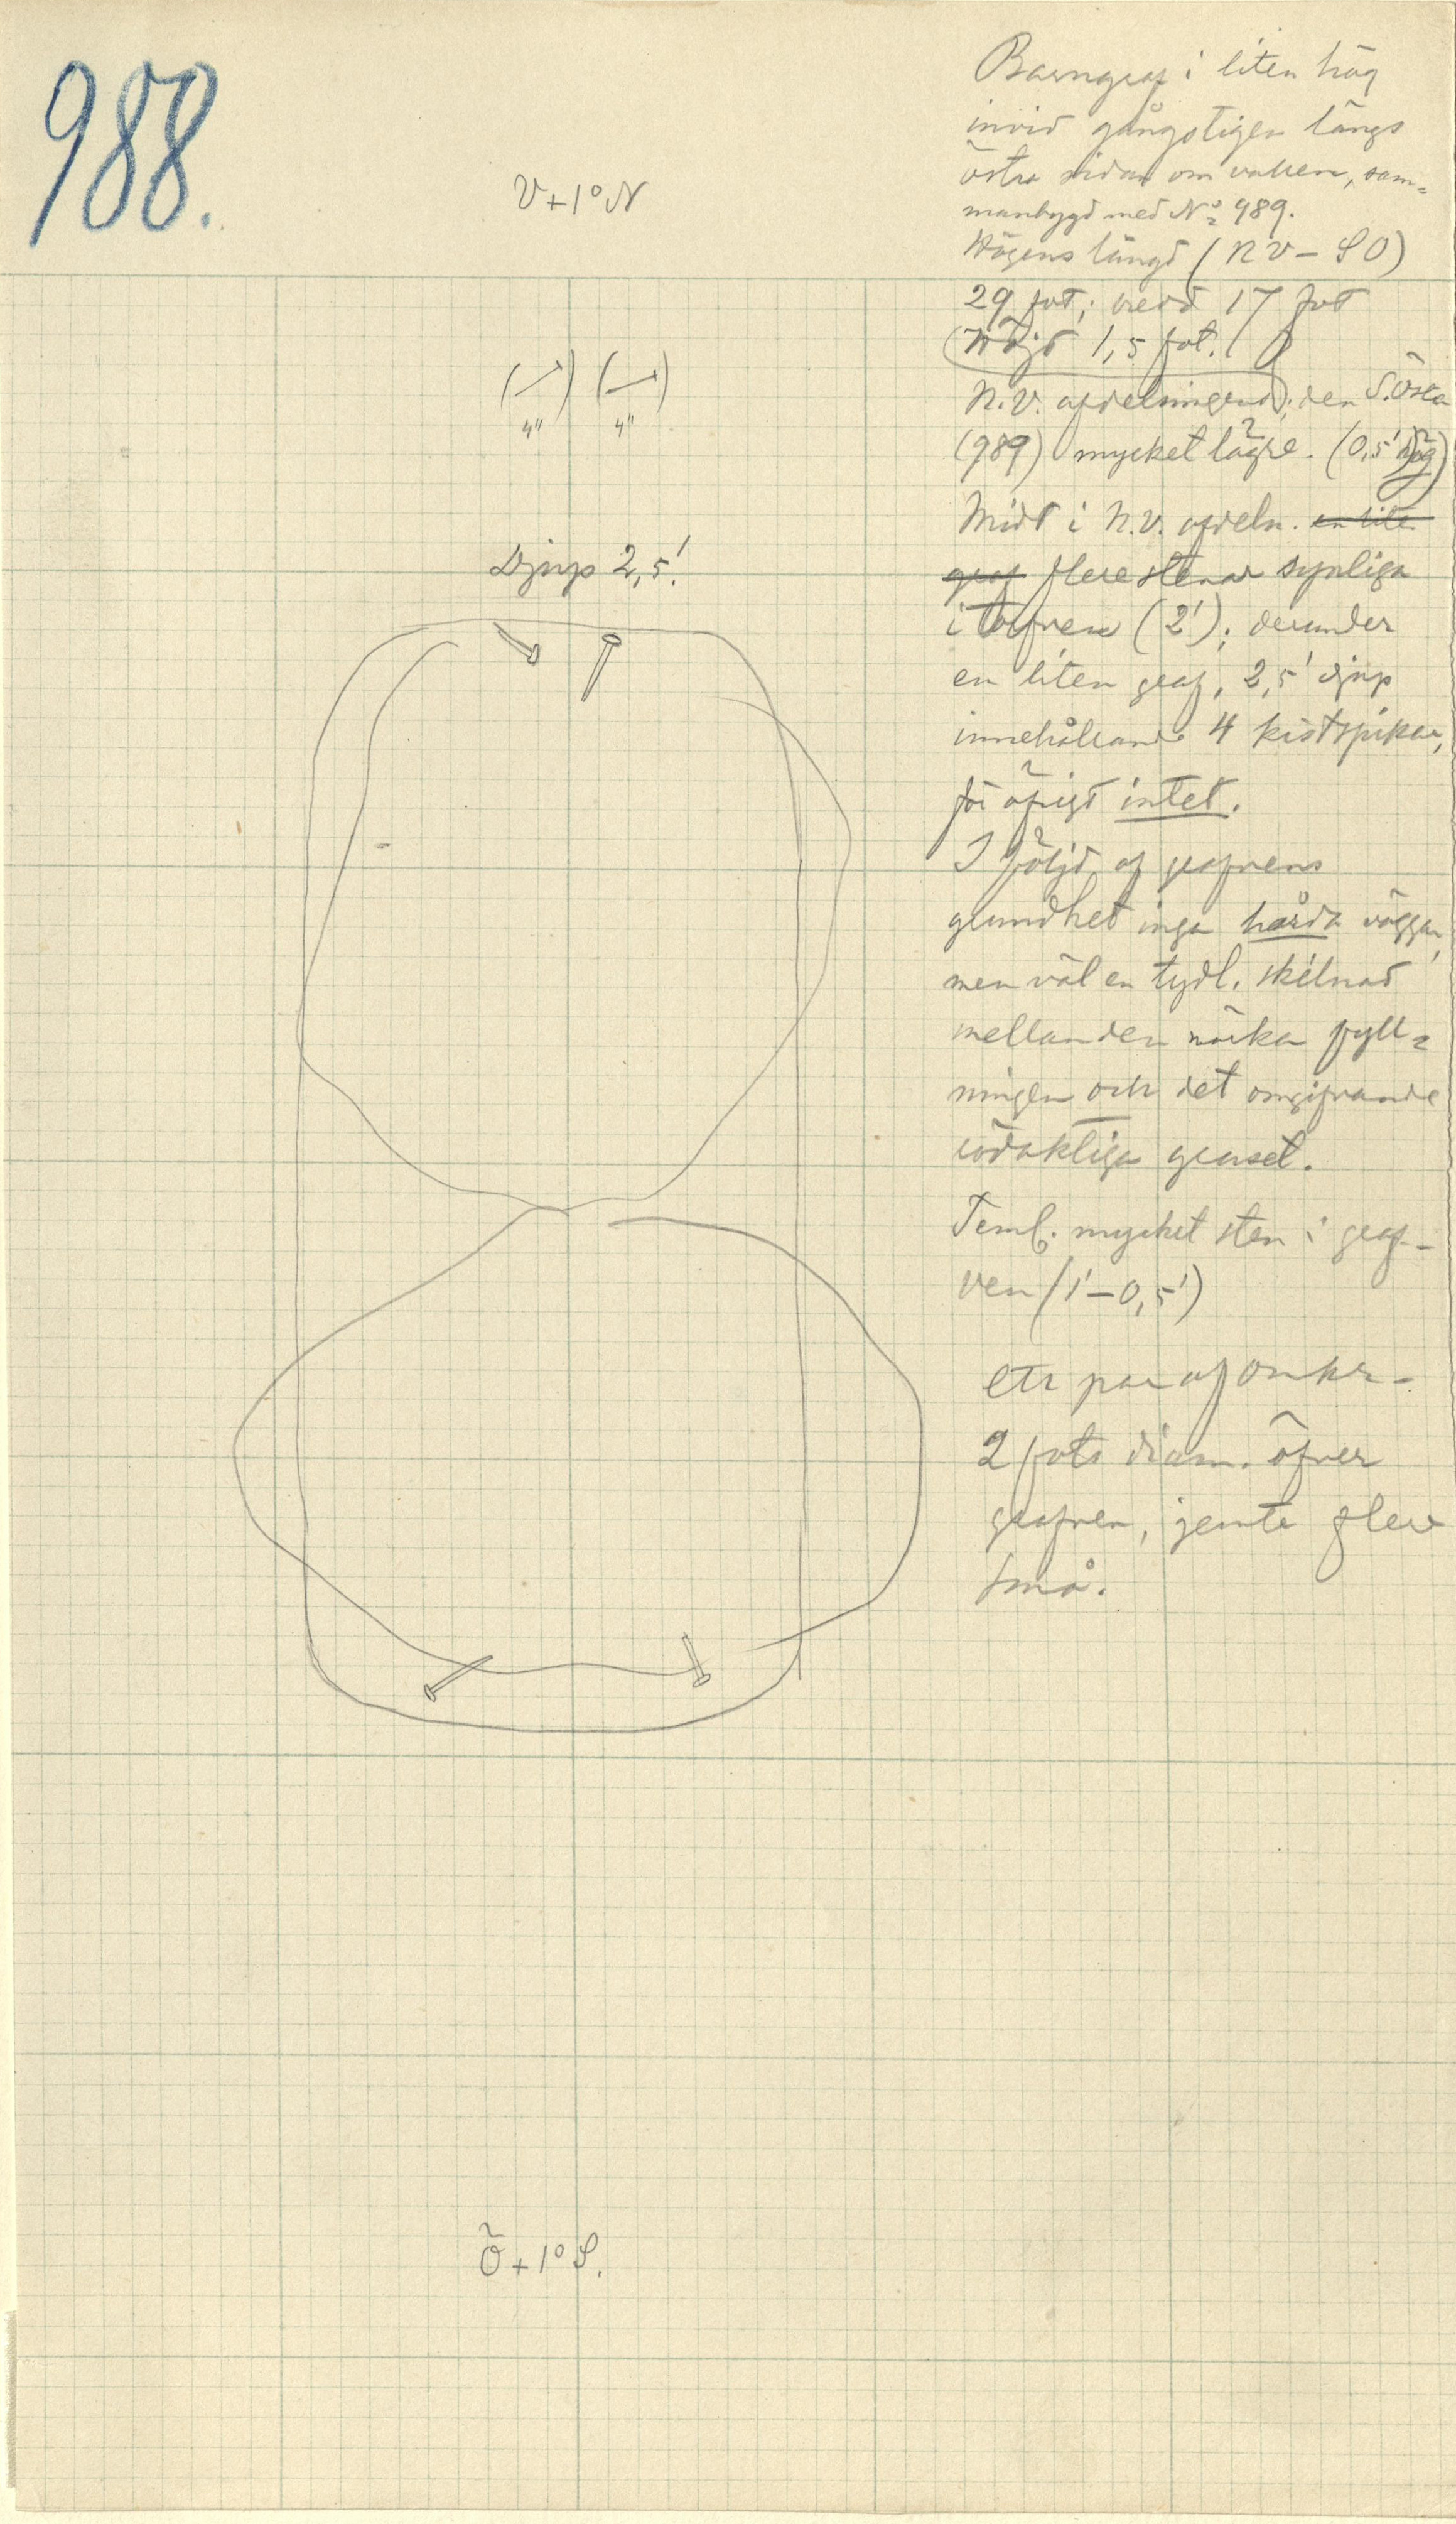 988.
V+1°N
4" 4"
Djup 2,5'.
Barngraf i liten hög
invid gångstigen längs
östra sidan om vallen, sam=
manbygd med No 989.
Högens längd (NV–SO)
29 fot; bredd 17 fot
(Höjd 1,5 fot.
N.V. afdelningens); den S.Östra
(989) mycket lägre. (0,5' hög)
Midt i N.V. afdeln. en lite
graf flere stenar synliga
i torfven (2'); derunder
en liten graf, 2,5' djup
innehållande 4 kistspikar,
för öfrigt intet.
I följd af grafvens
grundhet inga hårda väggar,
men väl en tydl. skilnad
mellan den mörka fyll=
ningen och det omgifvande
rödaktiga gruset.
Teml. mycket sten i graf-
ven (1'–0,5')
ett par af omkr-
2 fots diam. öfver
grafven, jemte flere
små.
Ö+1°S.